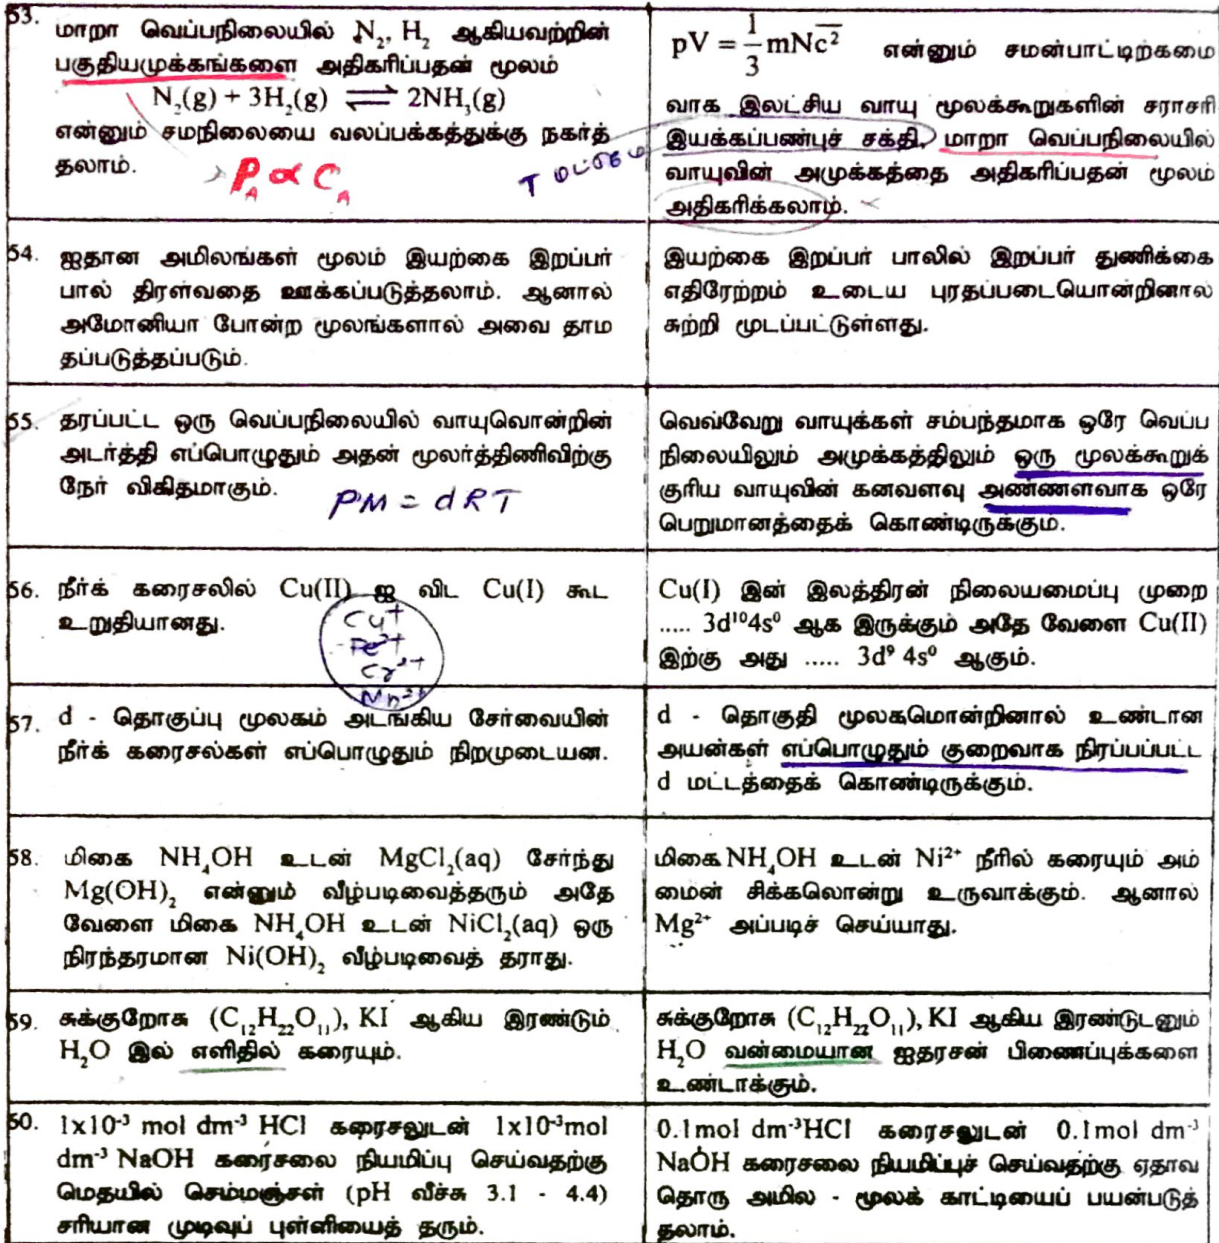 53. மாறா வெப்பநிலையில் N₂, H₂ ஆகியவற்றின்
பகுதியமுக்கங்களை அதிகரிப்பதன் மூலம்
N₂(g) + 3H₂(g) ⇌ 2NH₃(g)
என்னும் சமநிலையை வலப்பக்கத்துக்கு நகர்த்
தலாம்.
P_A ∝ C_A
pV = 1/3 mNc̅² என்னும் சமன்பாட்டிற்கமை
வாக இலட்சிய வாயு மூலக்கூறுகளின் சராசரி
இயக்கப்பண்புச் சக்தி, மாறா வெப்பநிலையில்
வாயுவின் அமுக்கத்தை அதிகரிப்பதன் மூலம்
அதிகரிக்கலாம்.
T
54. ஐதான அமிலங்கள் மூலம் இயற்கை இறப்பர்
பால் திரள்வதை ஊக்கப்படுத்தலாம். ஆனால்
அமோனியா போன்ற மூலங்களால் அவை தாம
தப்படுத்தப்படும்.
இயற்கை இறப்பர் பாலில் இறப்பர் துணிக்கை
எதிரேற்றம் உடைய புரதப்படையொன்றினால்
சுற்றி மூடப்பட்டுள்ளது.
55. தரப்பட்ட ஒரு வெப்பநிலையில் வாயுவொன்றின்
அடர்த்தி எப்பொழுதும் அதன் மூலர்த்திணிவிற்கு
நேர் விகிதமாகும்.
PM = dRT
வெவ்வேறு வாயுக்கள் சம்பந்தமாக ஒரே வெப்ப
நிலையிலும் அமுக்கத்திலும் ஒரு மூலக்கூறுக்
குரிய வாயுவின் கனவளவு அண்ணளவாக ஒரே
பெறுமானத்தைக் கொண்டிருக்கும்.
56. நீர்க் கரைசலில் Cu(II) ஐ விட Cu(I) கூட
உறுதியானது.
Cu⁺
Fe²⁺
Cr²⁺
Mn²⁺
Cu(I) இன் இலத்திரன் நிலையமைப்பு முறை
..... 3d¹⁰4s⁰ ஆக இருக்கும் அதே வேளை Cu(II)
இற்கு அது ..... 3d⁹ 4s⁰ ஆகும்.
57. d - தொகுப்பு மூலகம் அடங்கிய சேர்வையின்
நீர்க் கரைசல்கள் எப்பொழுதும் நிறமுடையன.
d - தொகுதி மூலகமொன்றினால் உண்டான
அயன்கள் எப்பொழுதும் குறைவாக நிரப்பப்பட்ட
d மட்டத்தைக் கொண்டிருக்கும்.
58. மிகை NH₄OH உடன் MgCl₂(aq) சேர்ந்து
Mg(OH)₂ என்னும் வீழ்படிவைத்தரும் அதே
வேளை மிகை NH₄OH உடன் NiCl₂(aq) ஒரு
நிரந்தரமான Ni(OH)₂ வீழ்படிவைத் தராது.
மிகை NH₄OH உடன் Ni²⁺ நீரில் கரையும் அம்
மைன் சிக்கலொன்று உருவாக்கும். ஆனால்
Mg²⁺ அப்படிச் செய்யாது.
59. சுக்குறோசு (C₁₂H₂₂O₁₁), KI ஆகிய இரண்டும்
H₂O இல் எளிதில் கரையும்.
சுக்குறோசு (C₁₂H₂₂O₁₁), KI ஆகிய இரண்டுடனும்
H₂O வன்மையான ஐதரசன் பிணைப்புக்களை
உண்டாக்கும்.
60. 1x10⁻³ mol dm⁻³ HCl கரைசலுடன் 1x10⁻³mol
dm⁻³ NaOH கரைசலை நியமிப்பு செய்வதற்கு
மெதயில் செம்மஞ்சள் (pH வீச்சு 3.1 - 4.4)
சரியான முடிவுப் புள்ளியைத் தரும்.
0.1mol dm⁻³HCl கரைசலுடன் 0.1mol dm⁻³
NaOH கரைசலை நியமிப்புச் செய்வதற்கு ஏதாவ
தொரு அமில - மூலக் காட்டியைப் பயன்படுத்
தலாம்.